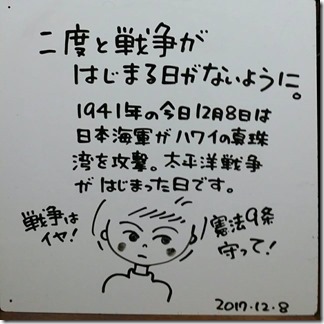 二度と戦争が
はじまる日がないように。
1941年の今日12月8日は
日本海軍がハワイの真珠
湾を攻撃。太平洋戦争
がはじまった日です。
戦争は
イヤ!
憲法9条
守って!
2017.12.8